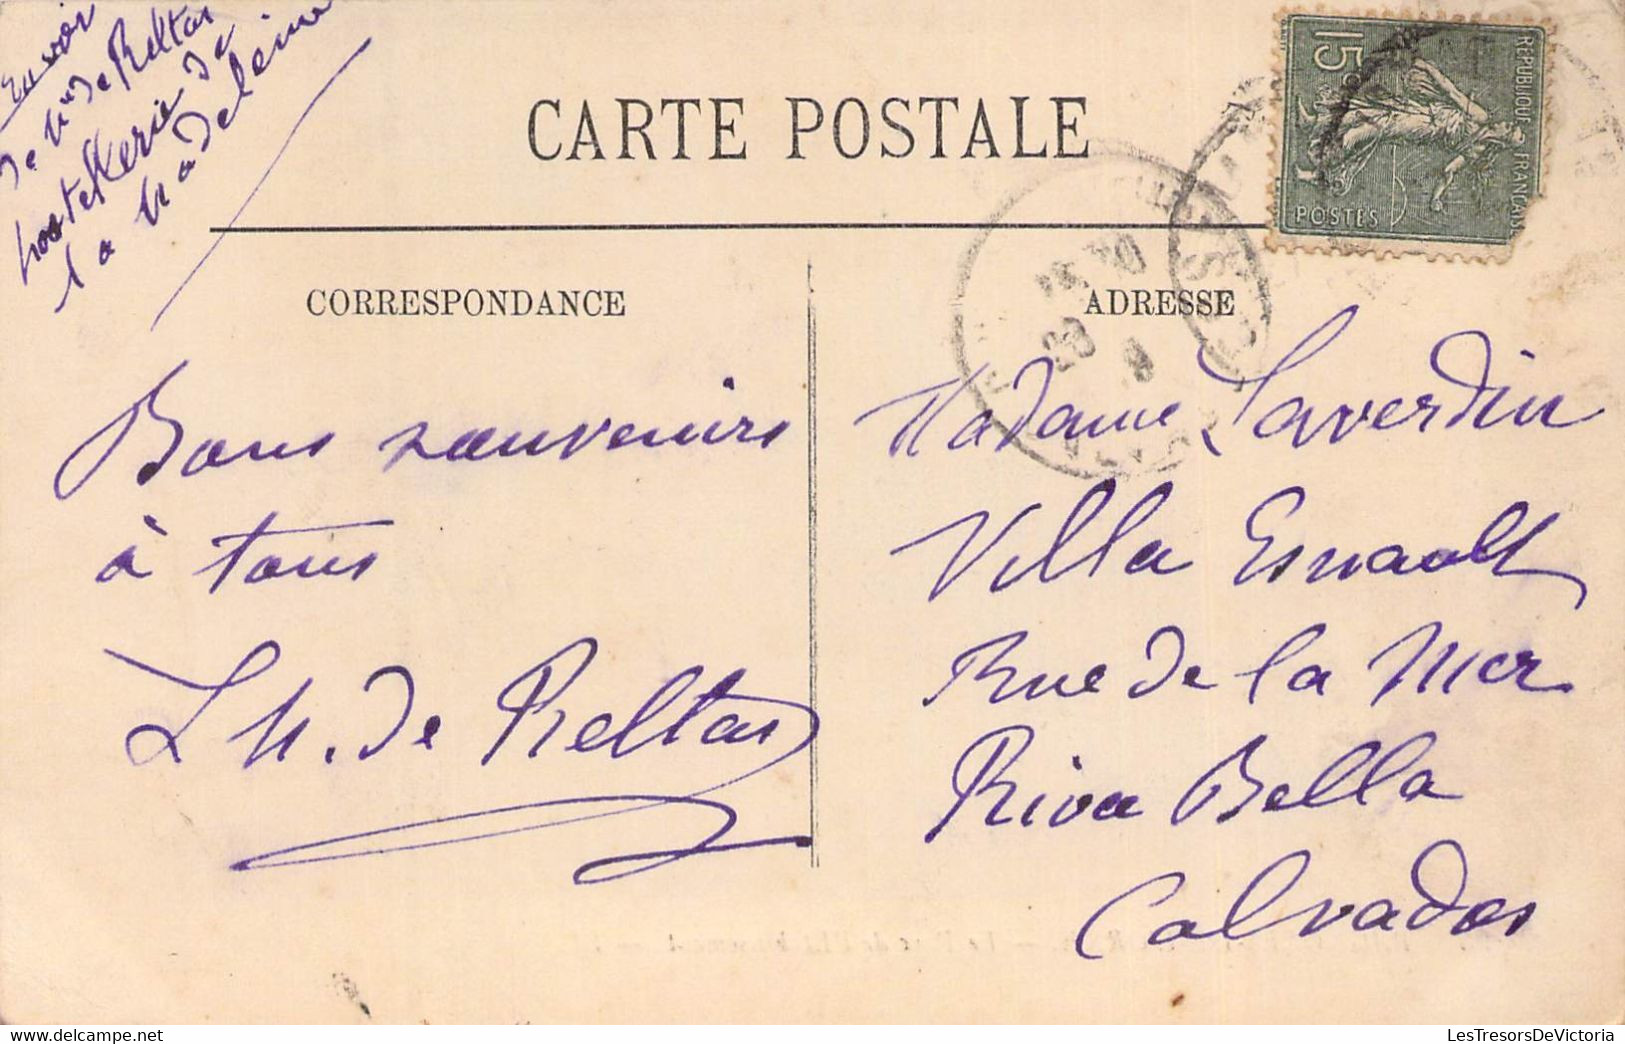 Envoi
de Mr de Reltas
hostellerie de
la Madeleine
CARTE POSTALE
RÉPUBLIQUE FRANÇAISE
15c
POSTES
CORRESPONDANCE
ADRESSE
Bons souvenirs
à tous
L M. de Reltas
Madame Laverdin
Villa Esnault
Rue de la Mer
Riva Bella
Calvados
LesTresorsDeVictoria